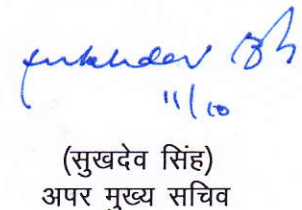 Sukhdev Singh
11/10
(सुखदेव सिंह)
अपर मुख्य सचिव